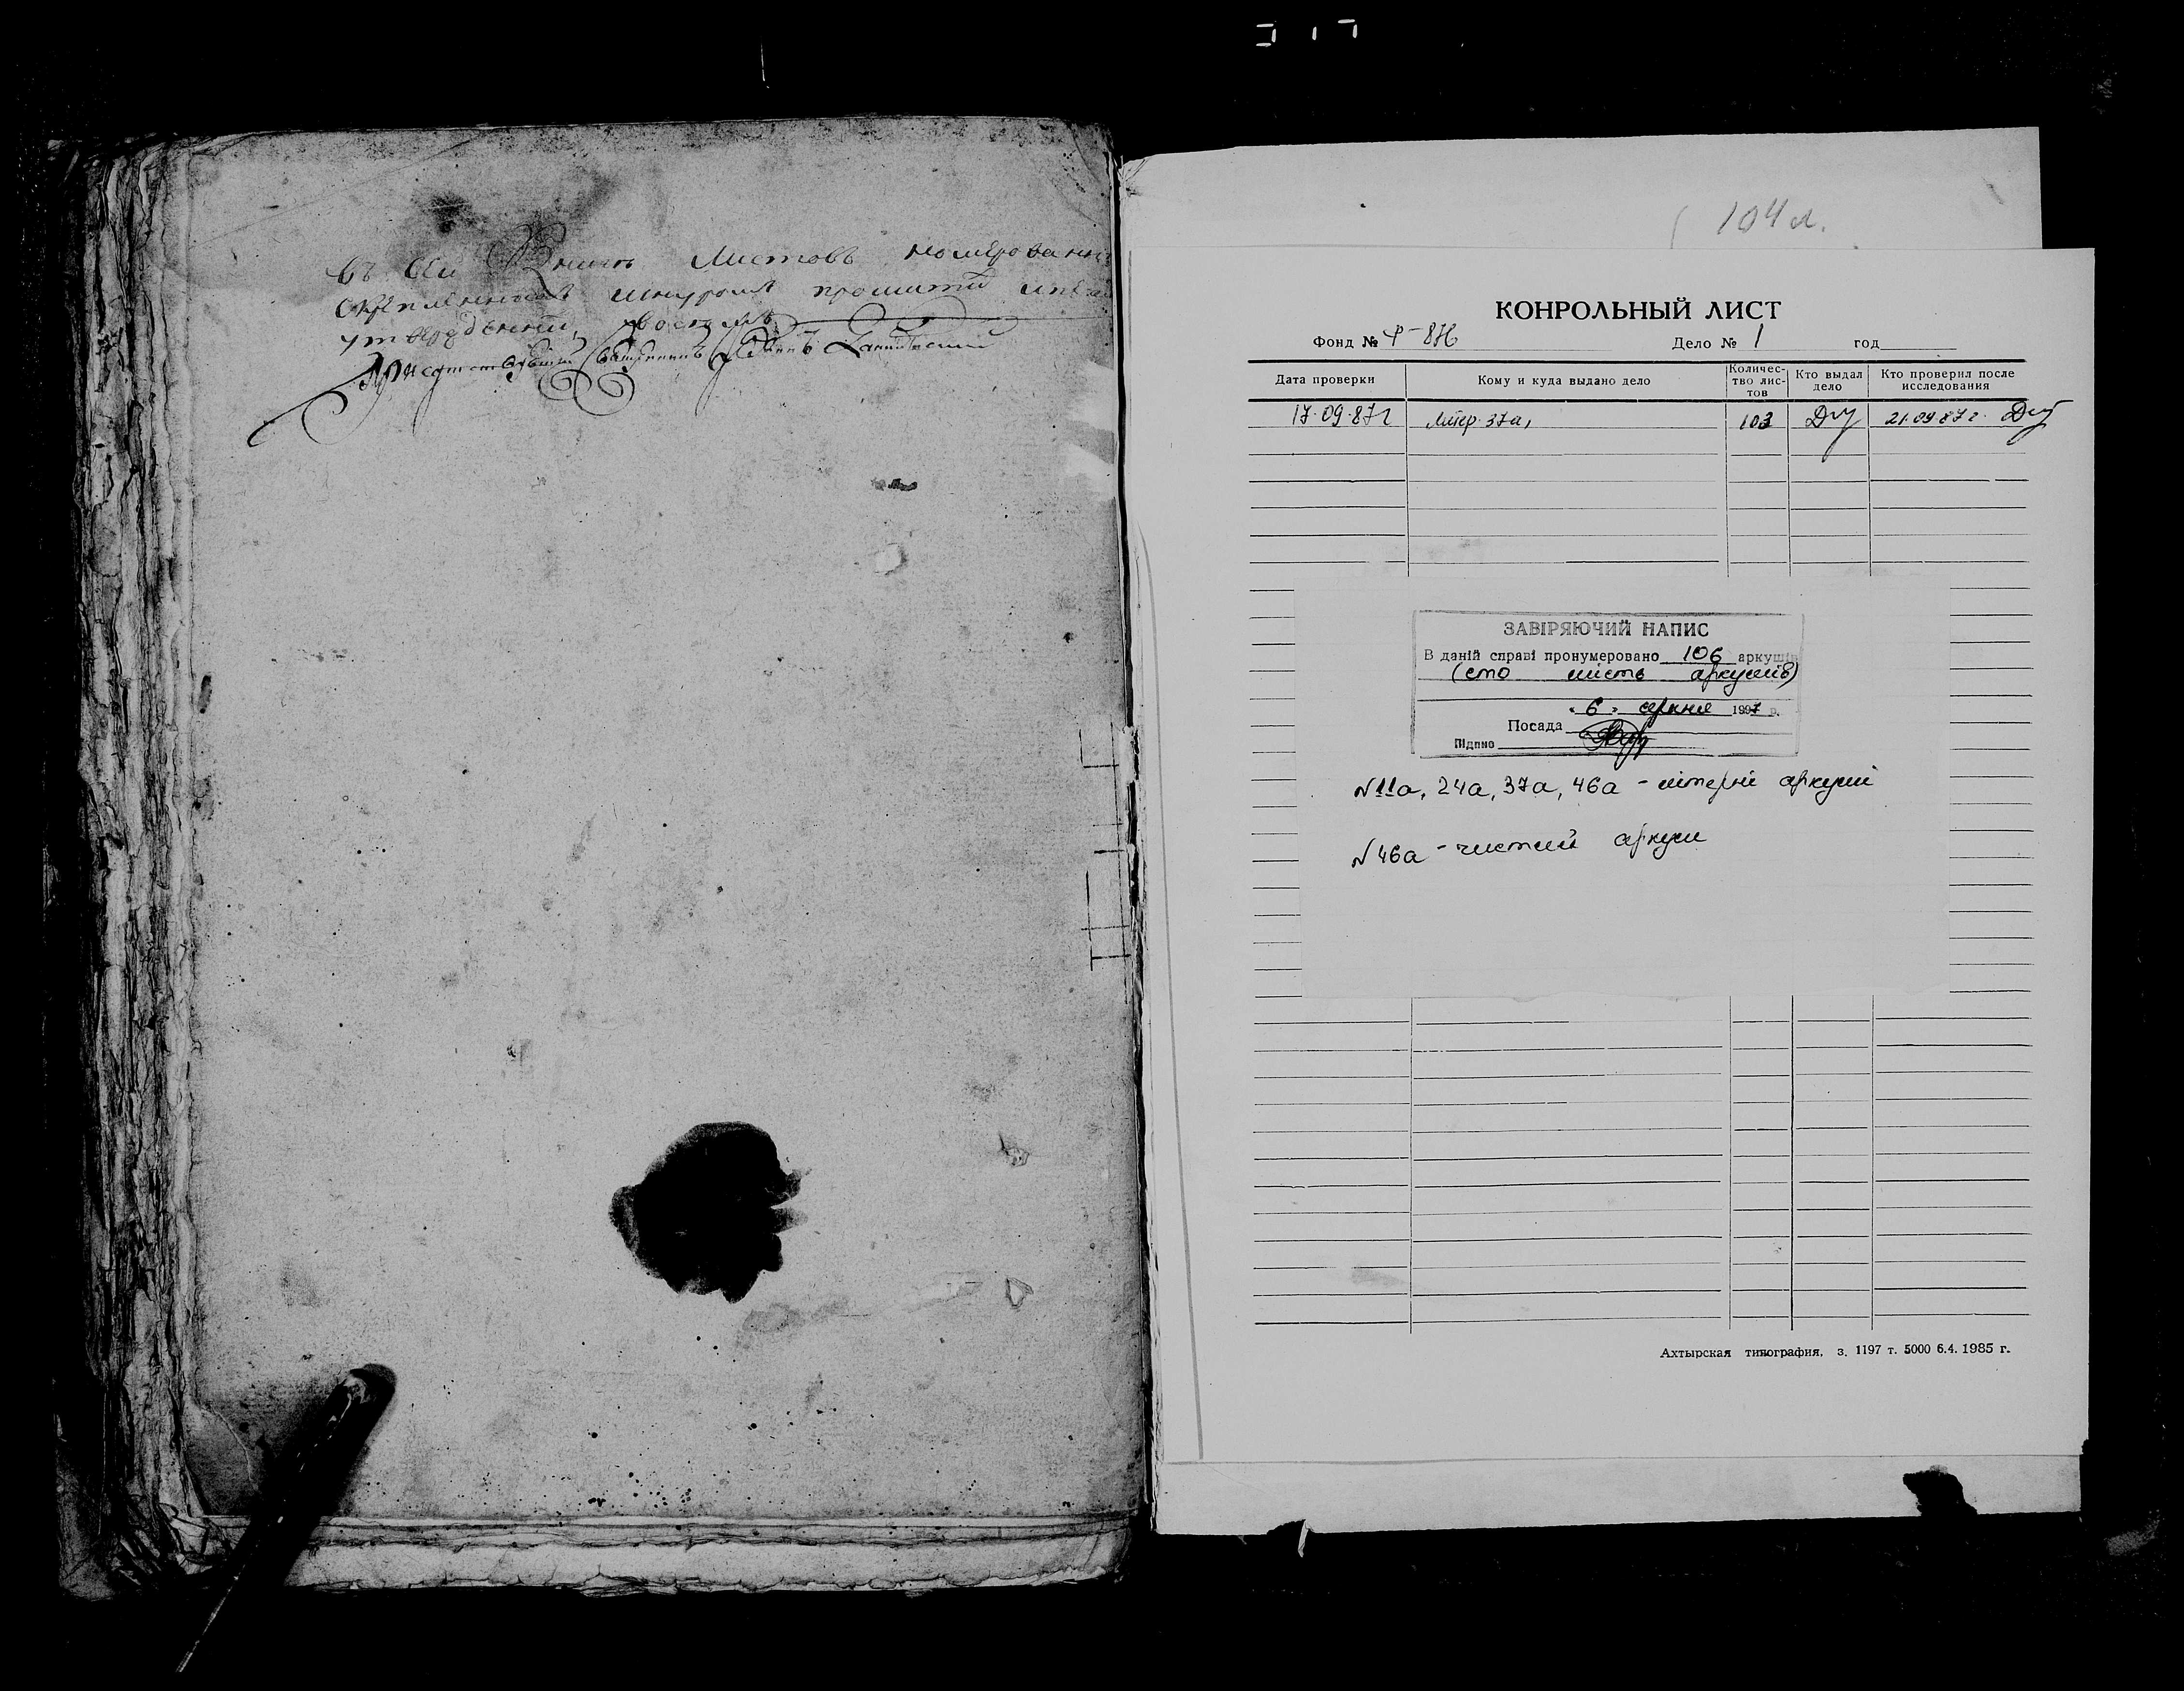 въ сей Книгѣ листовъ номерован
скрепленныхъ шнуромъ
утвержденныхъ
Присутствующій Священникъ
104 л.
КОНРОЛЬНЫЙ ЛИСТ
Фонд № Ф-876 Дело № 1 год
Дата проверки Кому и куда выдано дело Количес-тво лис-тов Кто выдал дело Кто проверил после исследования
17.09.87г Литер. 37а, 103 21.09.87г.
ЗАВІРЯЮЧИЙ НАПИС
В даній справі пронумеровано 106 аркушів
(сто шість аркушів)
«6» серпня 1997 р.
Посада
Підпис
N11а, 24а, 37а, 46а - літерні аркуші
N46а - чистий аркуш
Ахтырская типография, з. 1197 т. 5000 6.4. 1985 г.